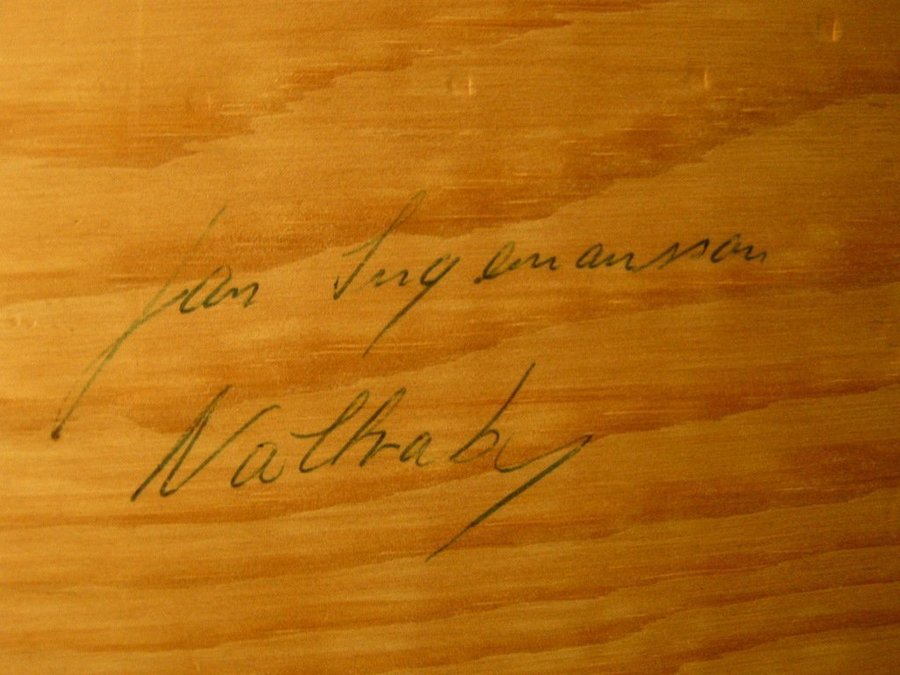 Jan Ingemansson
Nattraby